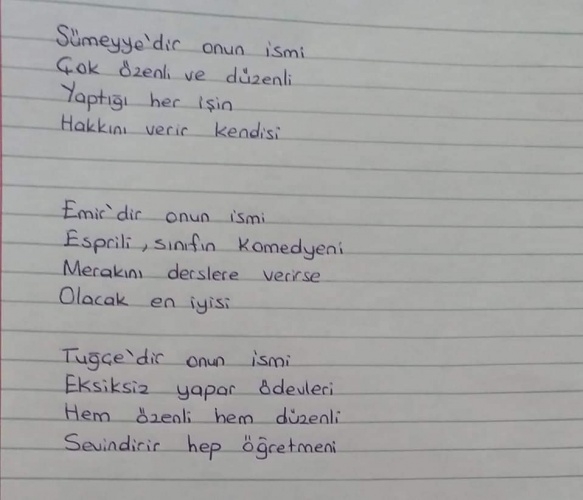 Sümeyye'dir onun ismi
Çok özenli ve düzenli
Yaptığı her işin
Hakkını verir kendisi
Emir'dir onun ismi
Esprili, sınıfın komedyeni
Merakını derslere verirse
Olacak en iyisi
Tuğçe'dir onun ismi
Eksiksiz yapar ödevleri
Hem özenli hem düzenli
Sevindirir hep öğretmeni